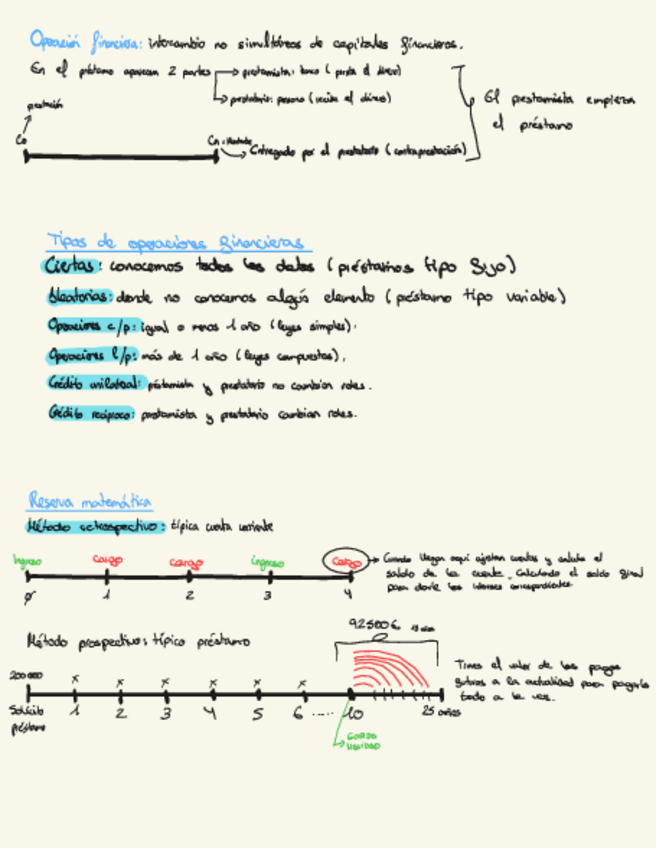 Operación financiera: intercambio no simultáneo de capitales financieros.
En el préstamo aparecen 2 partes → prestamista: banco (presta el dinero)
→ prestatario: persona (recibe el dinero)
El prestamista empieza
el préstamo
prestación
Co
Cn
Entregado por el prestatario (contraprestación)
Tipos de operaciones financieras
Ciertas: conocemos todos los datos (préstamos tipo fijo)
Aleatorias: donde no conocemos algún elemento (préstamo tipo variable)
Operaciones c/p: igual o menos 1 año (leyes simples).
Operaciones l/p: más de 1 año (leyes compuestas).
Crédito unilateral: préstamista y prestatario no cambian roles.
Crédito recíproco: prestamista y prestatario cambian roles.
Reserva matemática
Método retrospectivo: típica cuenta corriente
Ingreso cargo cargo ingreso cargo
0 1 2 3 4
→ Cuando llegan aquí ajustan cuentas y calcula el
saldo de la cuenta. Calculando el saldo final
para darle los intereses correspondientes
Método prospectivo: típico préstamo
92500€
200000 x x x x x x
Solicito 1 2 3 4 5 6 ..... 10 25 años
préstamo
Traes el valor de los pagos
futuros a la actualidad para pagarlo
todo a la vez.